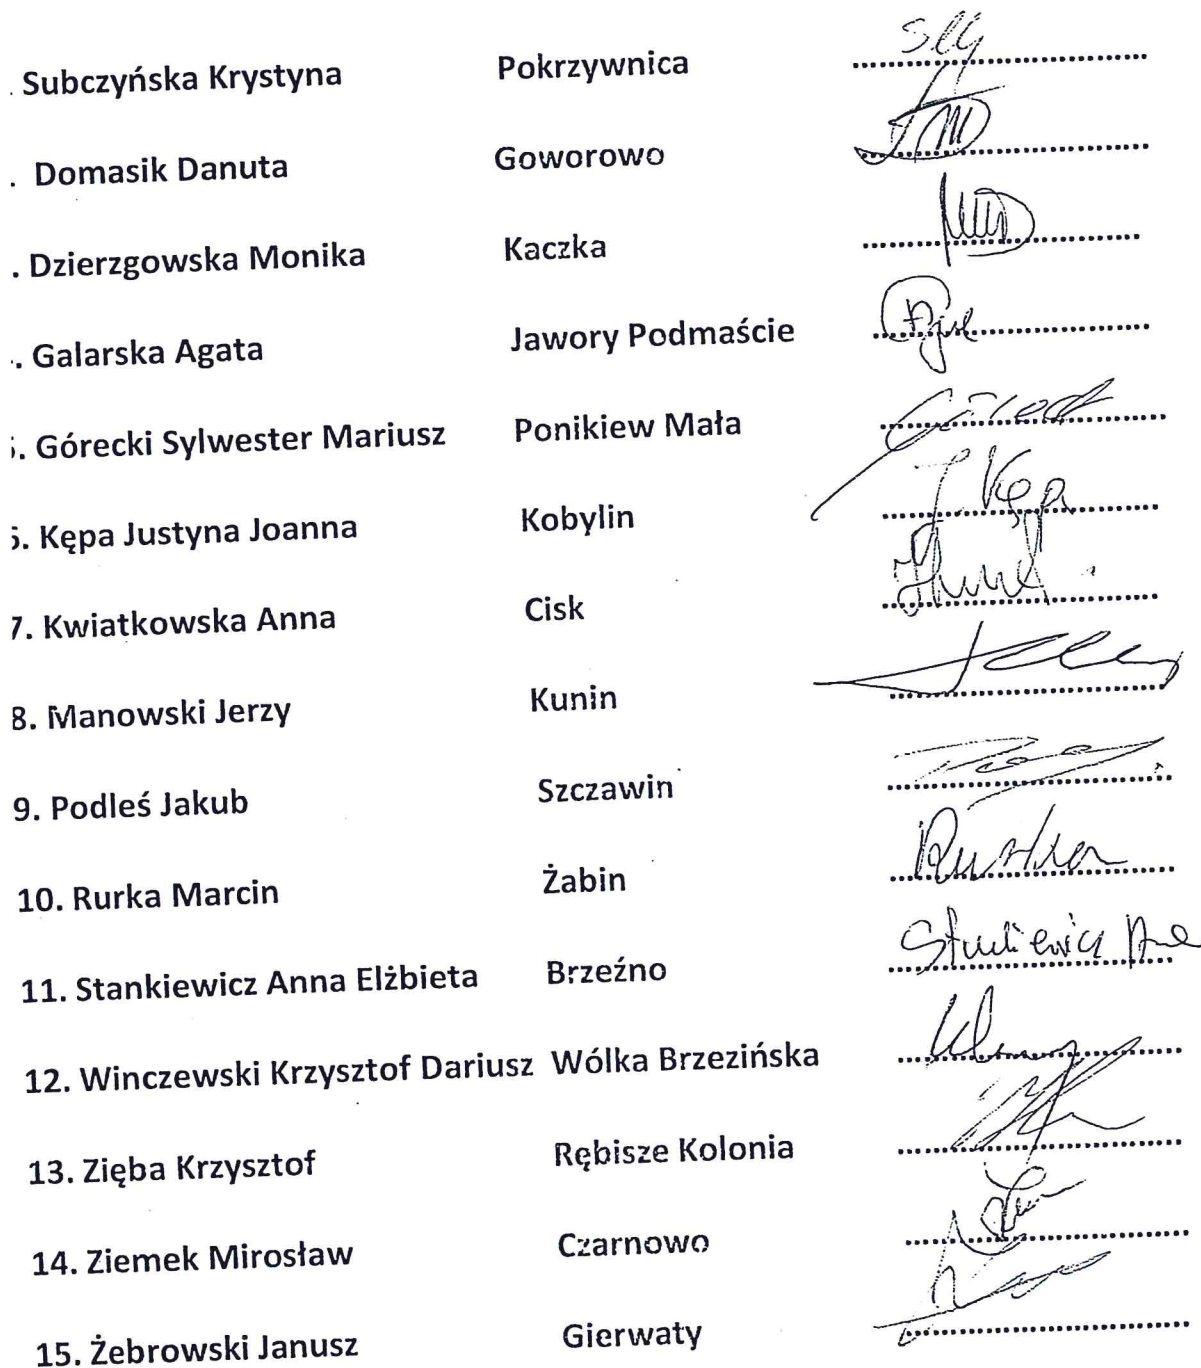 . Subczyńska Krystyna Pokrzywnica ....................
. Domasik Danuta Goworowo ....................
. Dzierzgowska Monika Kaczka ....................
. Galarska Agata Jawory Podmaście ....................
. Górecki Sylwester Mariusz Ponikiew Mała ....................
. Kępa Justyna Joanna Kobylin J. Kępa
7. Kwiatkowska Anna Cisk ....................
8. Manowski Jerzy Kunin ....................
9. Podleś Jakub Szczawin ....................
10. Rurka Marcin Żabin Rurka
11. Stankiewicz Anna Elżbieta Brzeźno Stankiewicz
12. Winczewski Krzysztof Dariusz Wólka Brzezińska ....................
13. Zięba Krzysztof Rębisze Kolonia ....................
14. Ziemek Mirosław Czarnowo ....................
15. Żebrowski Janusz Gierwaty ....................